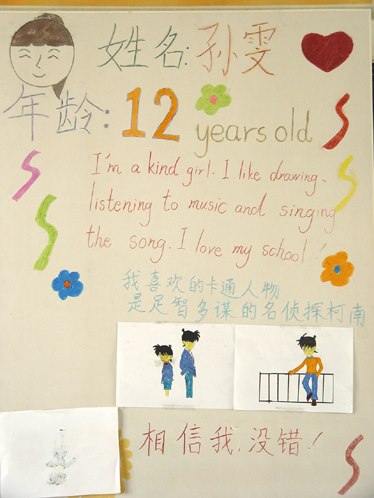 姓名:孙雯
年龄:12 years old
I'm a kind girl. I like drawing、
listening to music and singing
the song. I love my school!
我喜欢的卡通人物
是足智多谋的名侦探柯南
相信我,没错!